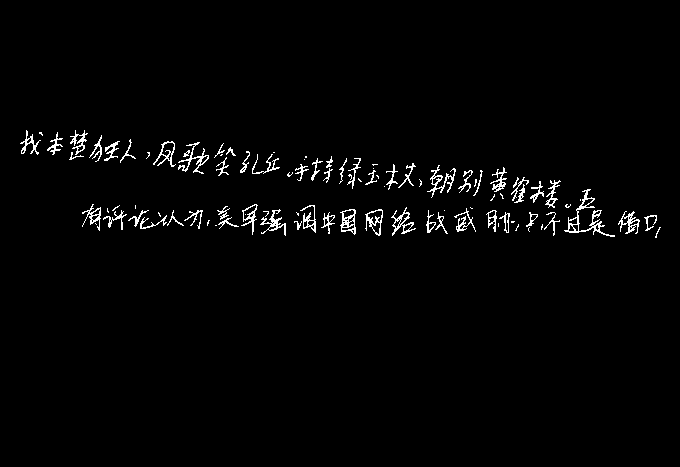 我本楚狂人,凤歌笑孔丘。手持绿玉杖,朝别黄雀楼。五
有评论认为,美军强调中国网络战威胁,只不过是借口,